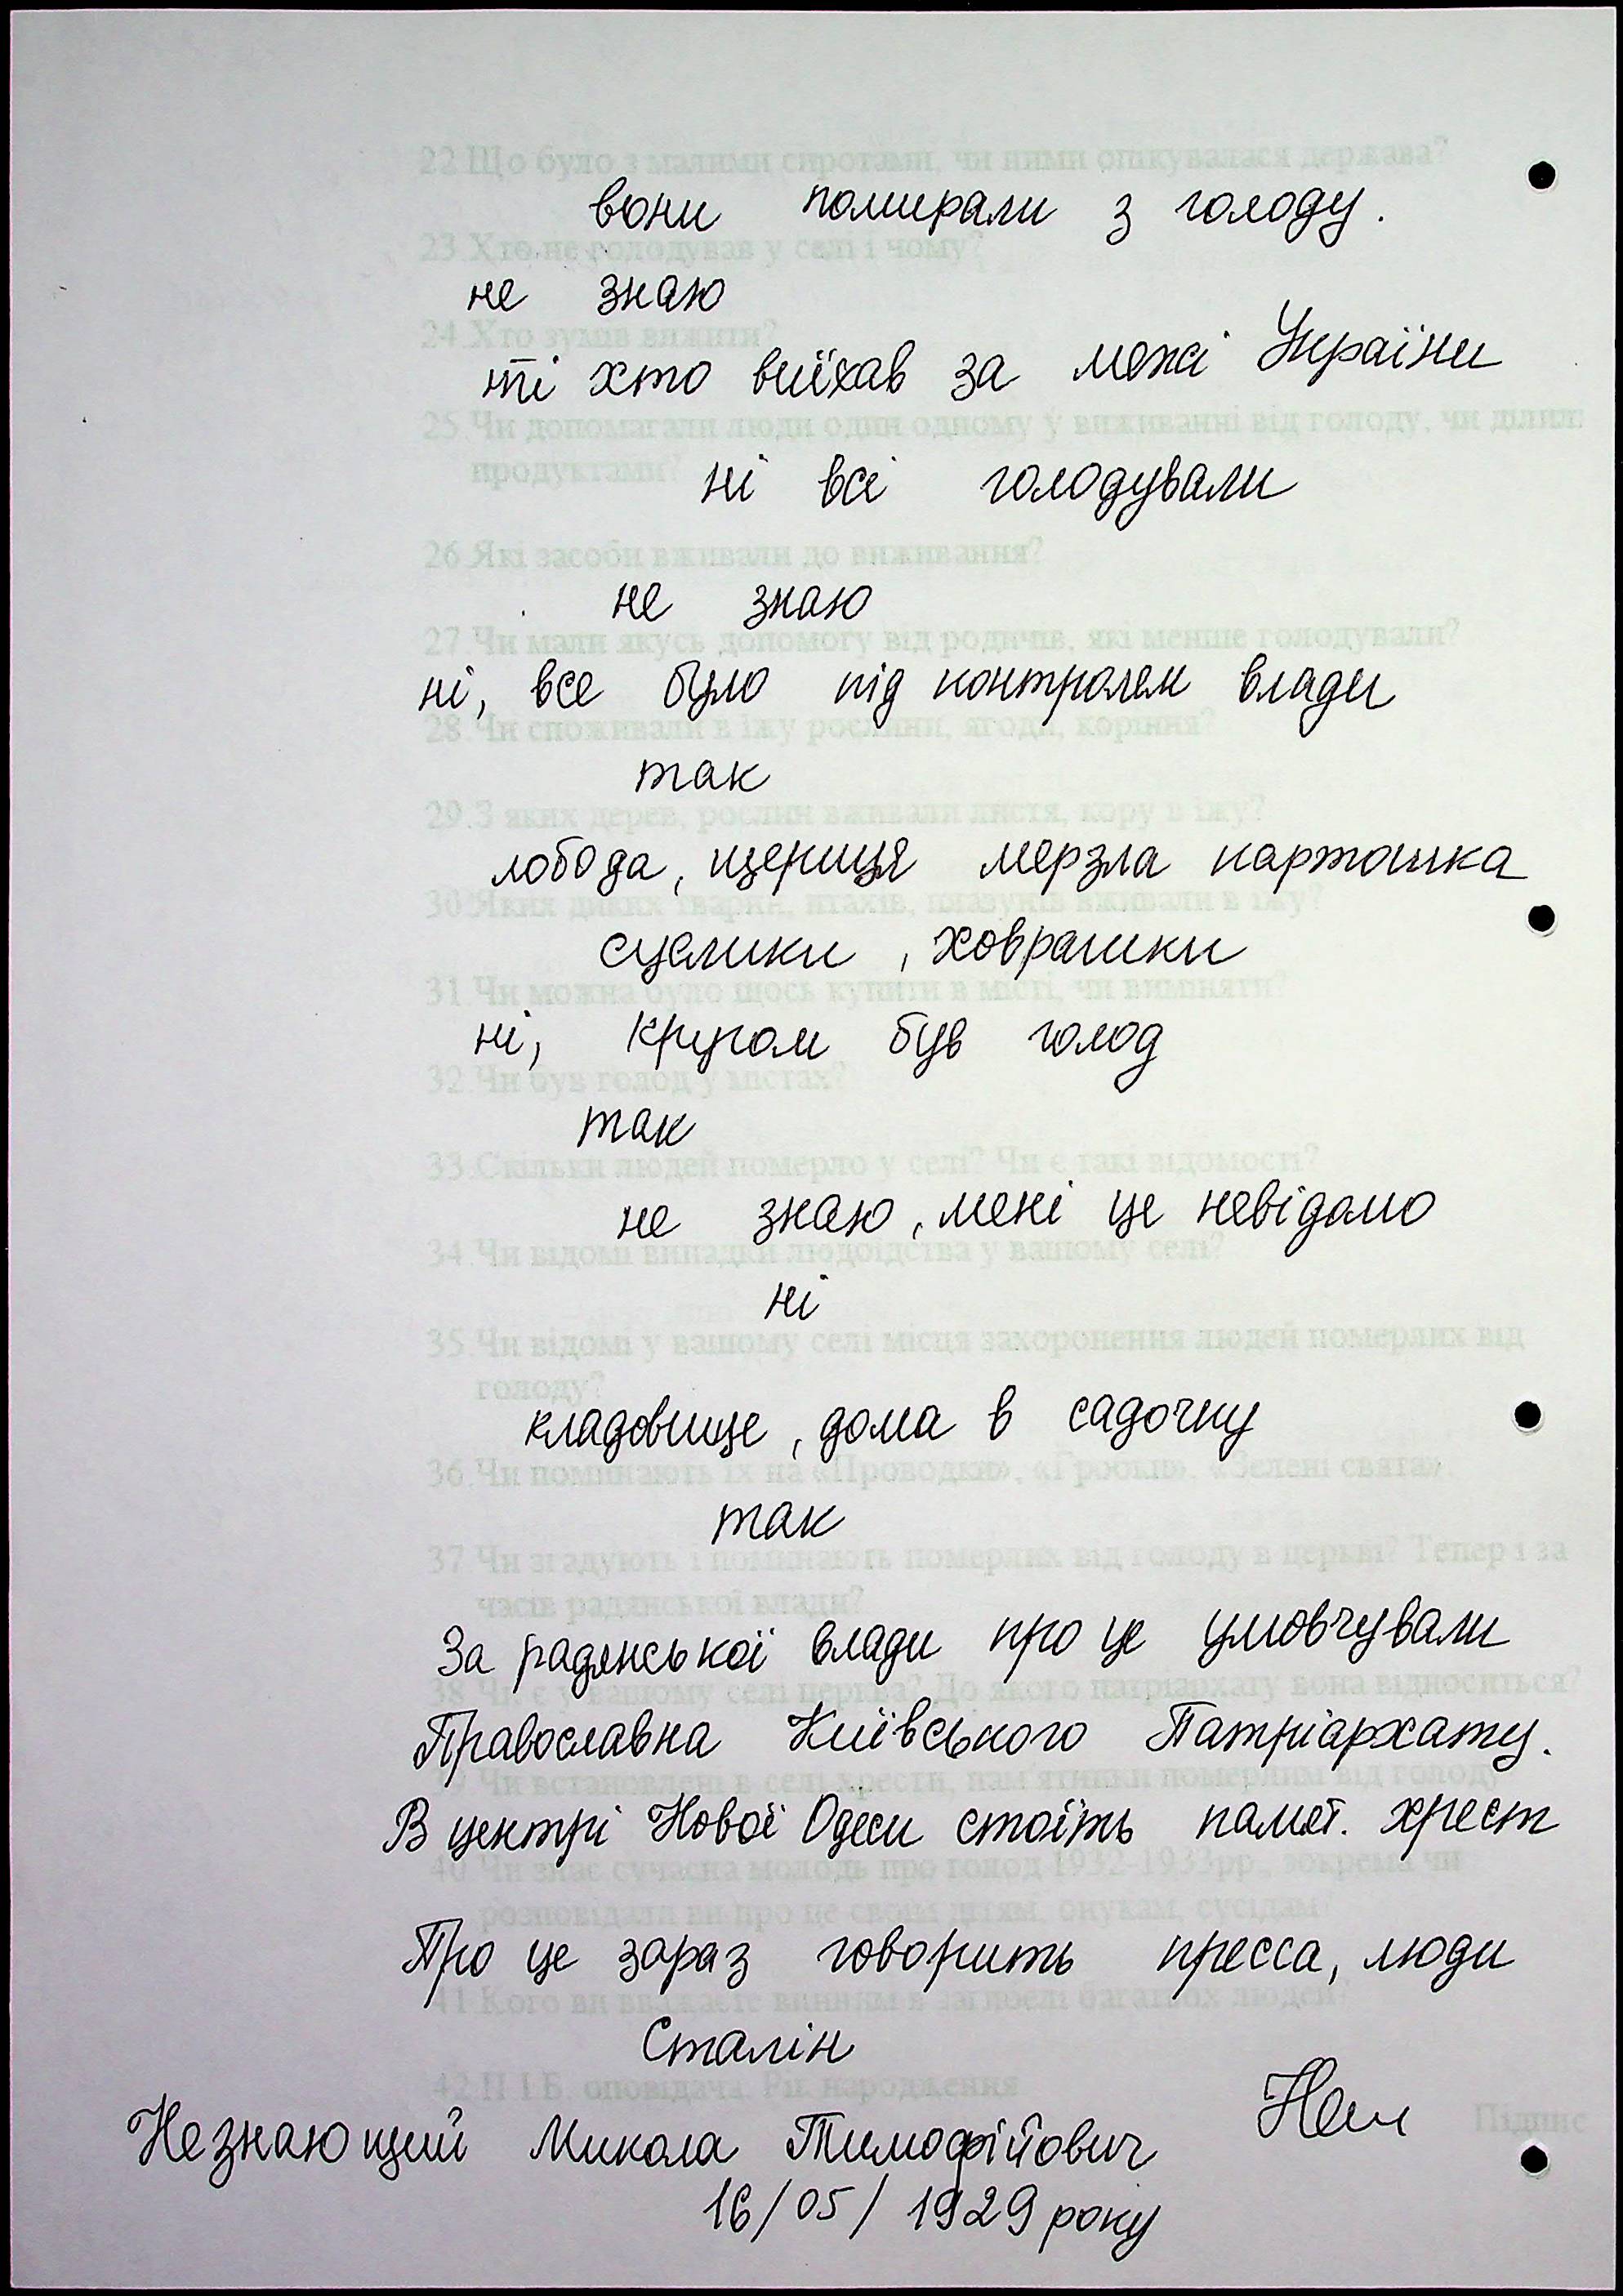 22.Що було з малими сиротами, чи ними опікувалася держава?
вони помирали з голоду.
23.Хто не голодував у селі і чому?
не знаю
24.Хто зумів вижити?
ті хто виїхав за межі України
25.Чи допомагали люди один одному у виживанні від голоду, чи ділил
продуктами?
ні всі голодували
26.Які засоби вживали до виживання?
не знаю
27.Чи мали якусь допомогу від родичів, які менше голодували?
ні, все було під контролем влади
28.Чи споживали в їжу рослини, ягоди, коріння?
так
29.З яких дерев, рослин вживали листя, кору в їжу?
лобода, щериця мерзла картошка
30.Яких диких тварин, птахів, плазунів вживали в їжу?
суслики, ховрашки
31.Чи можна було щось купити в місті, чи виміняти?
ні, кругом був голод
32.Чи був голод у містах?
так
33.Скільки людей померло у селі? Чи є такі відомості?
не знаю, мені це невідомо
34.Чи відомі випадки людоїдства у вашому селі?
ні
35.Чи відомі у вашому селі місця захоронення людей померлих від
голоду?
кладовище, дома в садочку
36.Чи поминають їх на «Проводки», «Гробки», «Зелені свята».
так
37.Чи згадують і поминають померлих від голоду в церкві? Тепер і за
часів радянської влади?
За радянської влади про це умовчували
38.Чи є у вашому селі церква? До якого патріархату вона відноситься?
Православна Київського Патріархату.
39.Чи встановлені в селі хрести, пам'ятники померлим від голоду
В центрі Нової Одеси стоїть памят. хрест
40.Чи знає сучасна молодь про голод 1932-1933рр., зокрема чи
розповідали ви про це своїм дітям, онукам, сусідам
Про це зараз говорить пресса, люди
41.Кого ви вважаєте винним в загибелі багатьох людей?
Сталін
42.П.І.Б. оповідача. Рік народження
Підпис
Незнающий Микола Тимофійович
16/05/1929 року